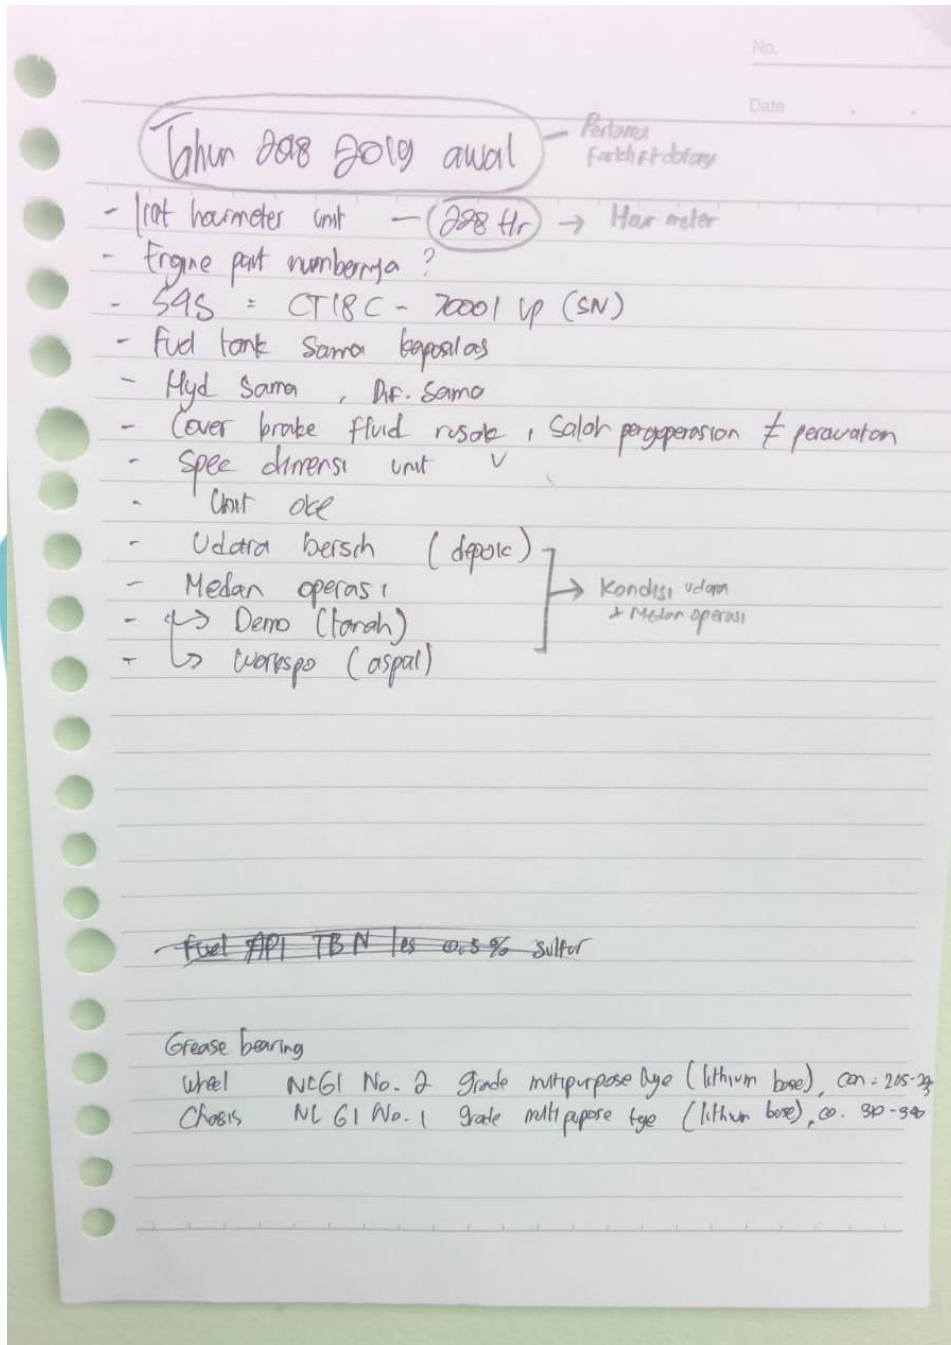 No.
Date
Tahun 2018 2019 awal
Pertama
- liat hourmeter unit - (228 Hr) → Hour meter
- Engine part numbernya ?
- SAS = CT18C - 70001 up (SN)
- Fuel tank sama kapasitas
- Hyd sama , Dif. sama
- Cover brake fluid rusak , salah pengoperasian ≠ perawatan
- Spec dimensi unit v
- Unit oke
- Udara bersih (depok)
- Medan operasi → Kondisi udara
+ Medan operasi
- ↳ Demo (tanah)
- ↳ Workspo (aspal)
- Fuel API TBN les 0.5 % sulfur
Grease bearing
Wheel NLGI No. 2 grade multipurpose type (lithium base), con : 
Chasis NLGI No. 1 grade multipupose type (lithium base), co.